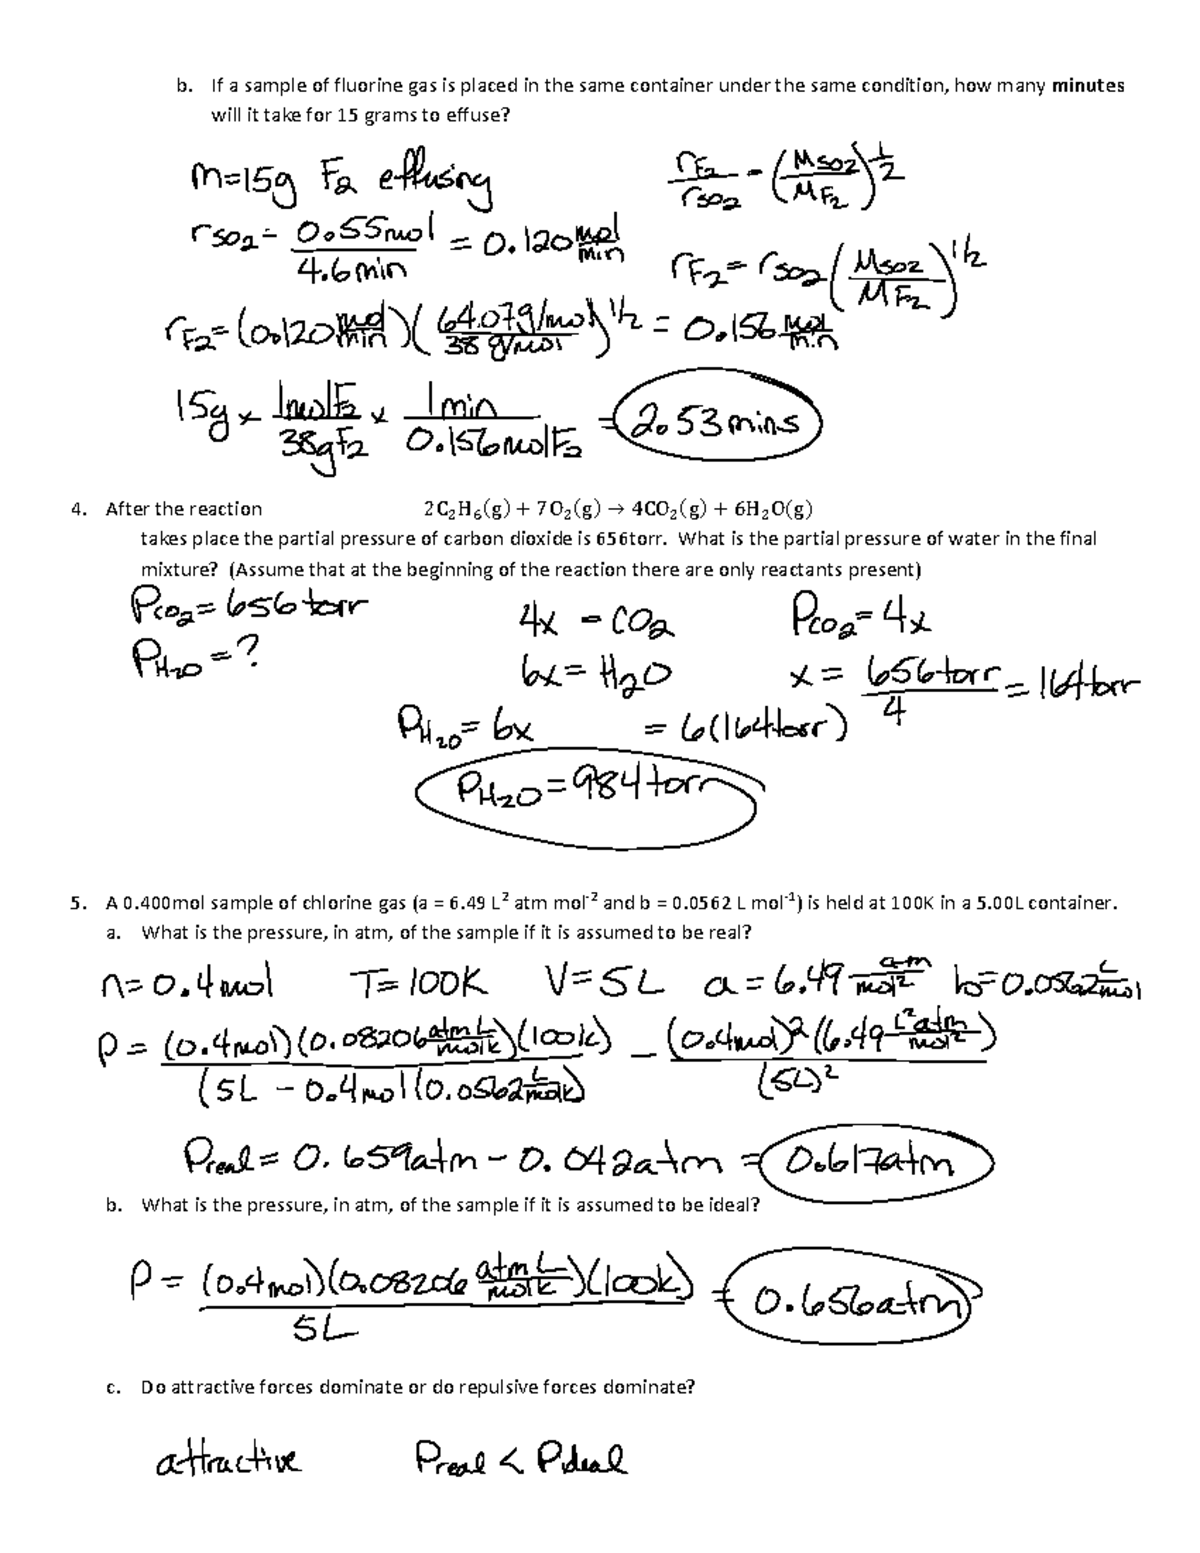 b. If a sample of fluorine gas is placed in the same container under the same condition, how many minutes
will it take for 15 grams to effuse?
m=15g F₂ effusing
rF₂/rSO₂ = (MSO₂/MF₂)^1/2
rSO₂ = 0.55mol/4.6min = 0.120 mol/min
rF₂ = rSO₂ (MSO₂/MF₂)^1/2
rF₂ = (0.120 mol/min)(64.07g/mol/38 g/mol)^1/2 = 0.156 mol/min
15g x 1molF₂/38gF₂ x 1min/0.156molF₂ = 2.53mins
4. After the reaction 2C₂H₆(g) + 7O₂(g) → 4CO₂(g) + 6H₂O(g)
takes place the partial pressure of carbon dioxide is 656torr. What is the partial pressure of water in the final
mixture? (Assume that at the beginning of the reaction there are only reactants present)
PCO₂ = 656torr 4x = CO₂ PCO₂ = 4x
PH₂O = ? 6x = H₂O x = 656torr/4 = 164torr
PH₂O = 6x = 6(164torr)
PH₂O = 984torr
5. A 0.400mol sample of chlorine gas (a = 6.49 L² atm mol⁻² and b = 0.0562 L mol⁻¹) is held at 100K in a 5.00L container.
a. What is the pressure, in atm, of the sample if it is assumed to be real?
n=0.4mol T=100K V=5L a=6.49 atm/mol² b=0.0562 L/mol
P = (0.4mol)(0.08206 atm L/mol k)(100k)/(5L - 0.4mol(0.0562 L/molk) - (0.4mol)²(6.49 L²atm/mol²)/(5L)²
Preal = 0.659atm - 0.042atm = 0.617atm
b. What is the pressure, in atm, of the sample if it is assumed to be ideal?
P = (0.4mol)(0.08206 atm L/mol k)(100k)/5L = 0.656atm
c. Do attractive forces dominate or do repulsive forces dominate?
attractive Preal < Pideal